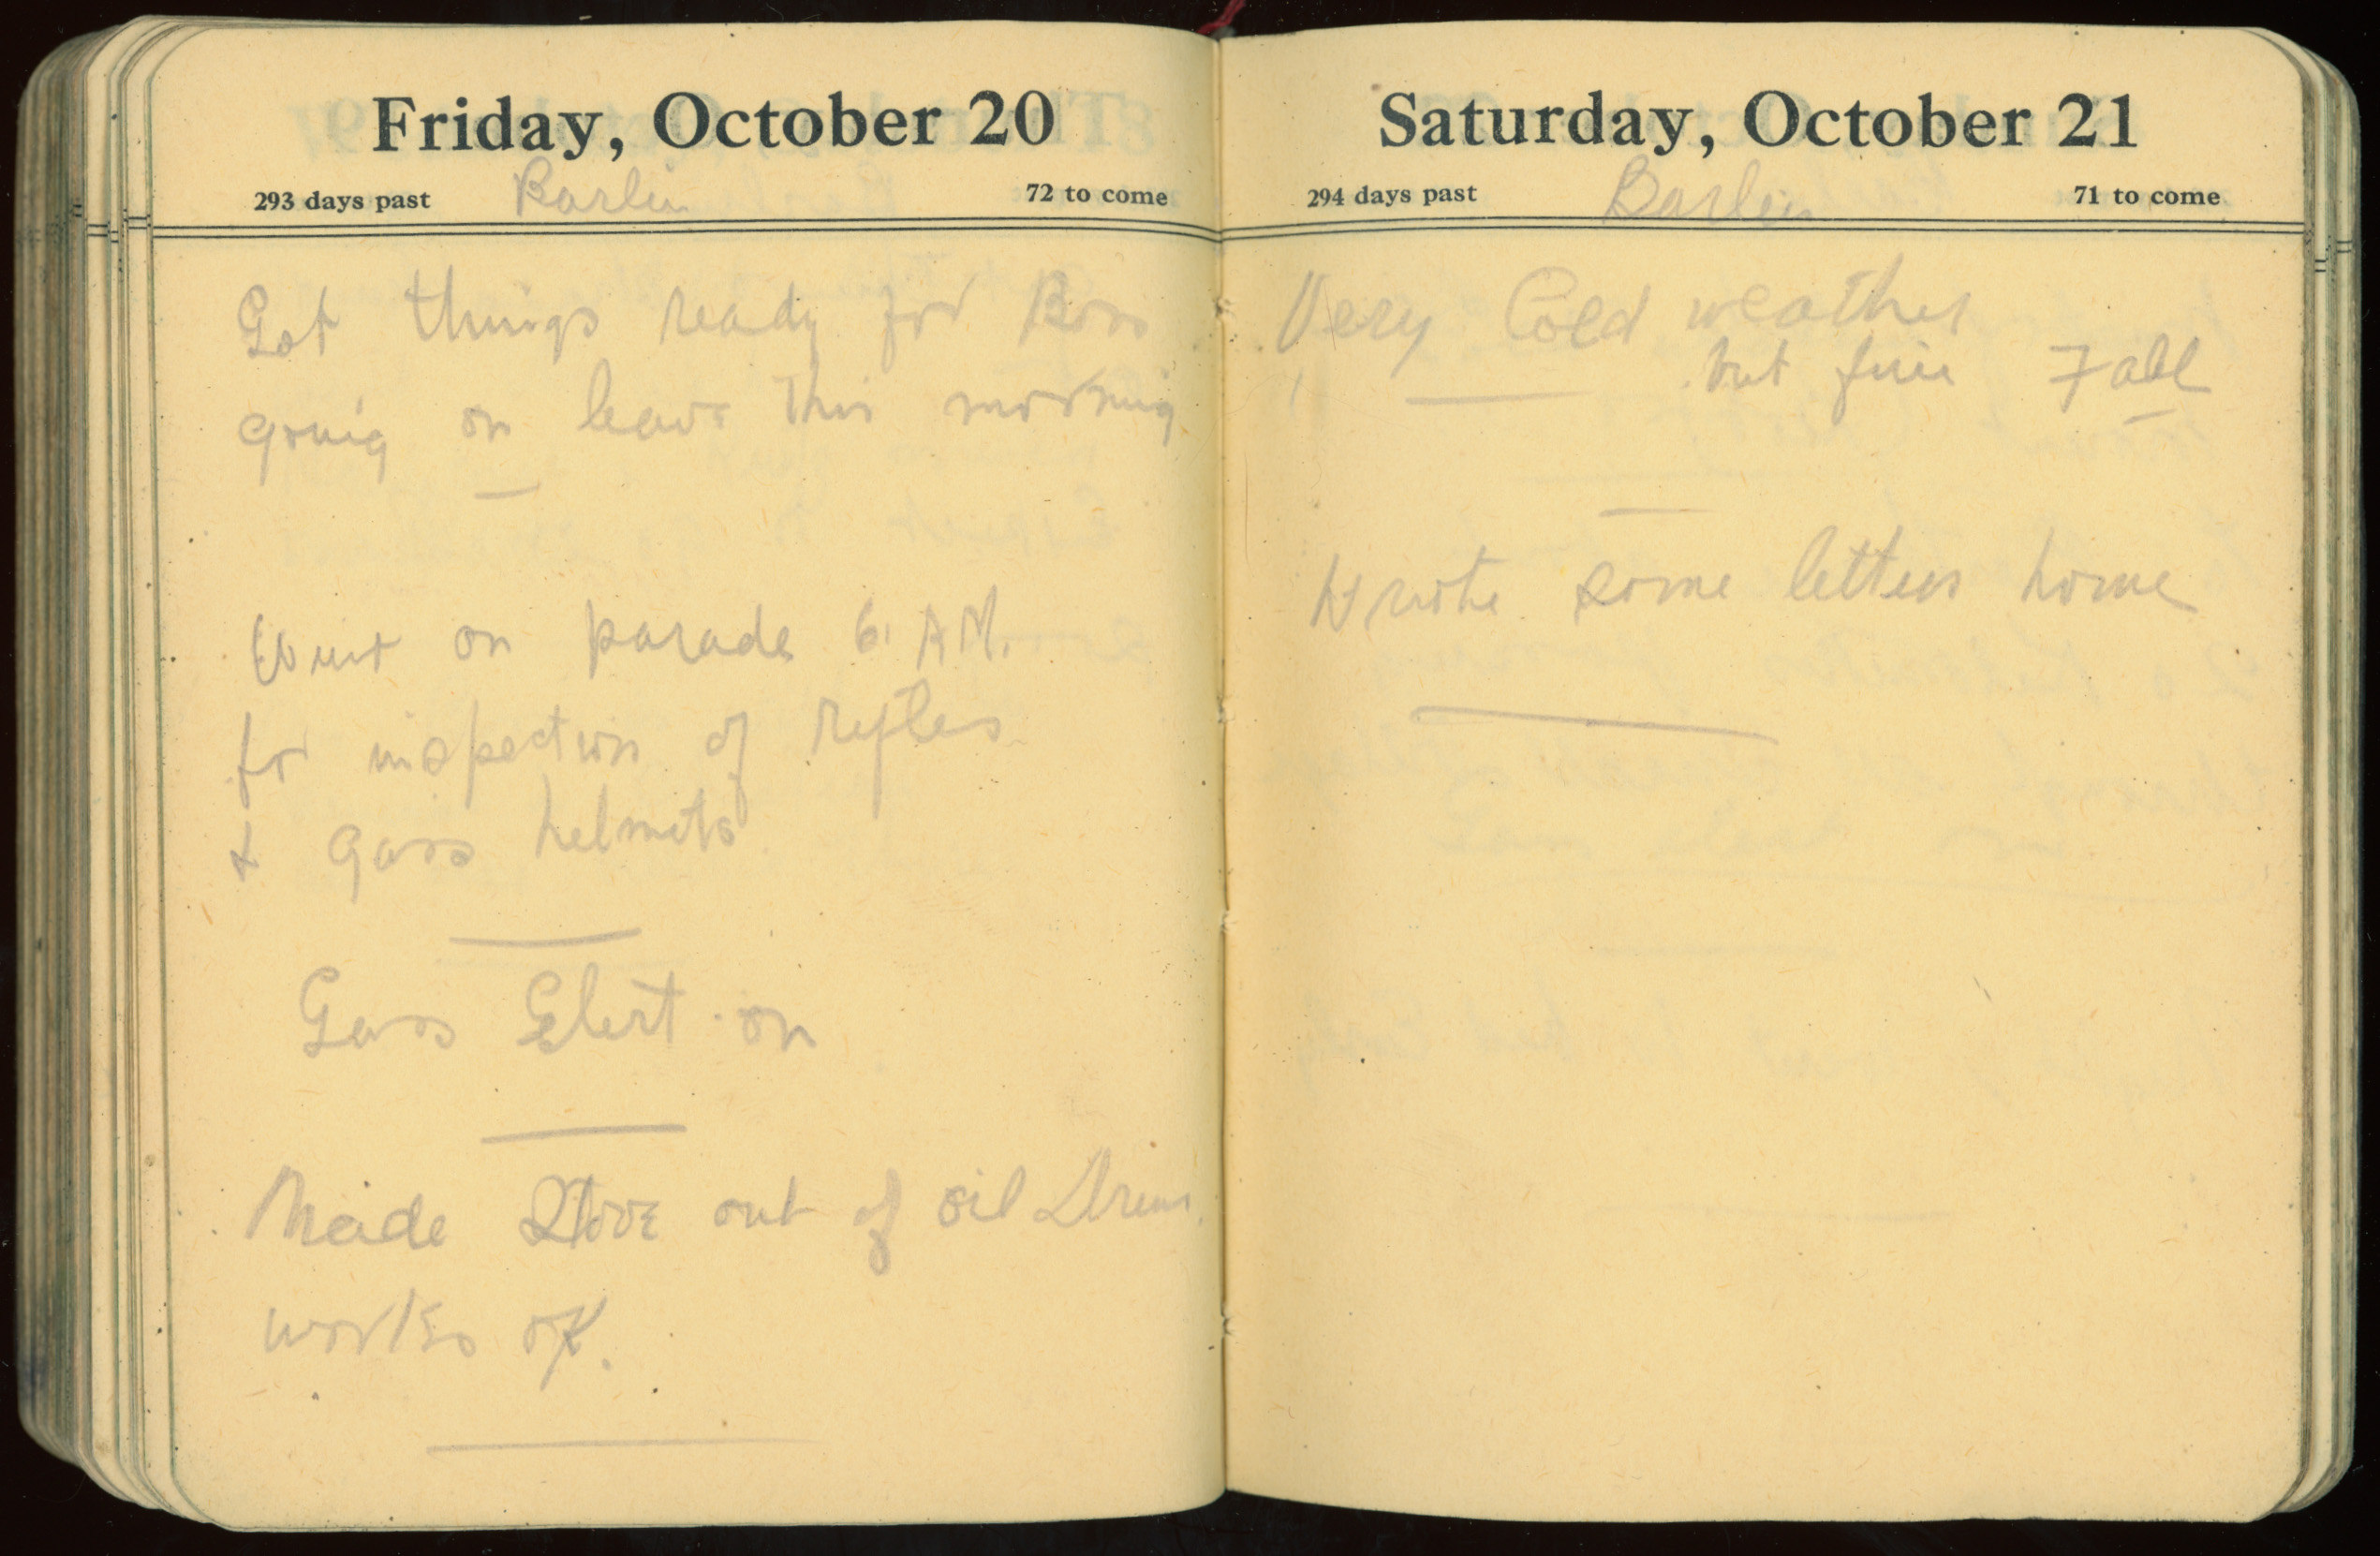 Friday, October 20
293 days past Barlin 72 to come
Got things ready for Boss
going on leave this morning
Went on parade 6. A M.
for inspection of rifles
& gass helmets
Gass Elert on
Made Stove out of oil Drum
works ok.
Saturday, October 21
294 days past Barlin 71 to come
Very Cold weather
but fine Fall
Wrote some letters home